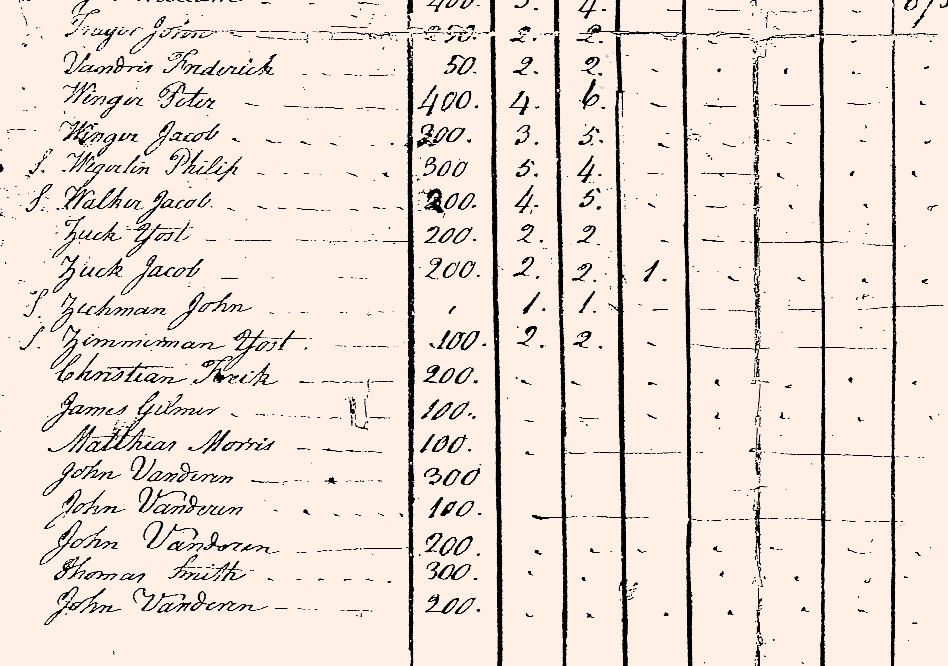 400. 3. 4.
Trayer John 250. 2. 2.
Vandris Frederick 50. 2. 2.
Winger Peter 400. 4. 6.
Winger Jacob 300. 3. 5.
S. Wegerlin Philip 300 5. 4.
S. Walker Jacob 200. 4. 5.
Zuck Yost 200. 2. 2
Zuck Jacob 200. 2. 2. 1.
S. Zechman John 1. 1.
S. Zimmerman Yost 100. 2. 2.
Christian 200.
James Gilmer 100.
Matthias Morris 100.
John Vanderen 300
John Vanderen 100.
John Vanderen 200.
Thomas Smith 300.
John Vanderen 200.